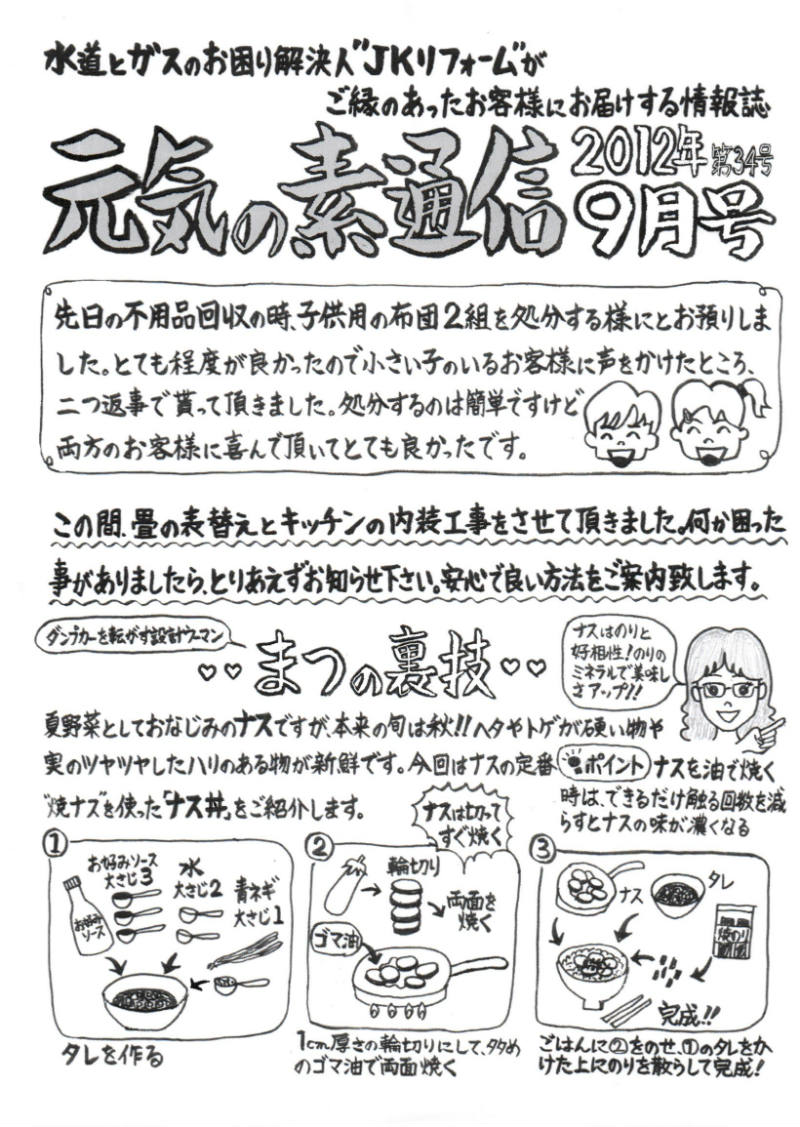 水道とガスのお困り解決人"JKリフォーム"が
ご縁のあったお客様にお届けする情報誌
元気の素通信
2012年 第34号
9月号
先日の不用品回収の時、子供用の布団2組を処分する様にとお預りしま
した。とても程度が良かったので小さい子のいるお客様に声をかけたところ、
二つ返事で貰って頂きました。処分するのは簡単ですけど
両方のお客様に喜んで頂いてとても良かったです。
この間、畳の表替えとキッチンの内装工事をさせて頂きました。何か困った
事がありましたら、とりあえずお知らせ下さい。安心で良い方法をご案内致します。
ダンプカーを転がす設計ウーマン
まつの裏技
ナスはのりと
好相性!のりの
ミネラルで美味し
さアップ!!
夏野菜としておなじみのナスですが、本来の旬は秋!!ヘタやトゲが硬い物や
実のツヤツヤしたハリのある物が新鮮です。今回はナスの定番
"焼ナス"を使った「ナス丼」をご紹介します。
ポイント ナスを油で焼く
時は、できるだけ触る回数を減
らすとナスの味が濃くなる
①
お好みソース
大さじ3
水
大さじ2
青ネギ
大さじ1
お好み
ソース
タレを作る
②
ナスは切って
すぐ焼く
輪切り
両面を
焼く
ゴマ油
1cm厚さの輪切りにして、タタめ
のゴマ油で両面焼く
③
ナス
タレ
焼のり
完成!!
ごはんに②をのせ、①のタレをか
けた上にのりを散らして完成!